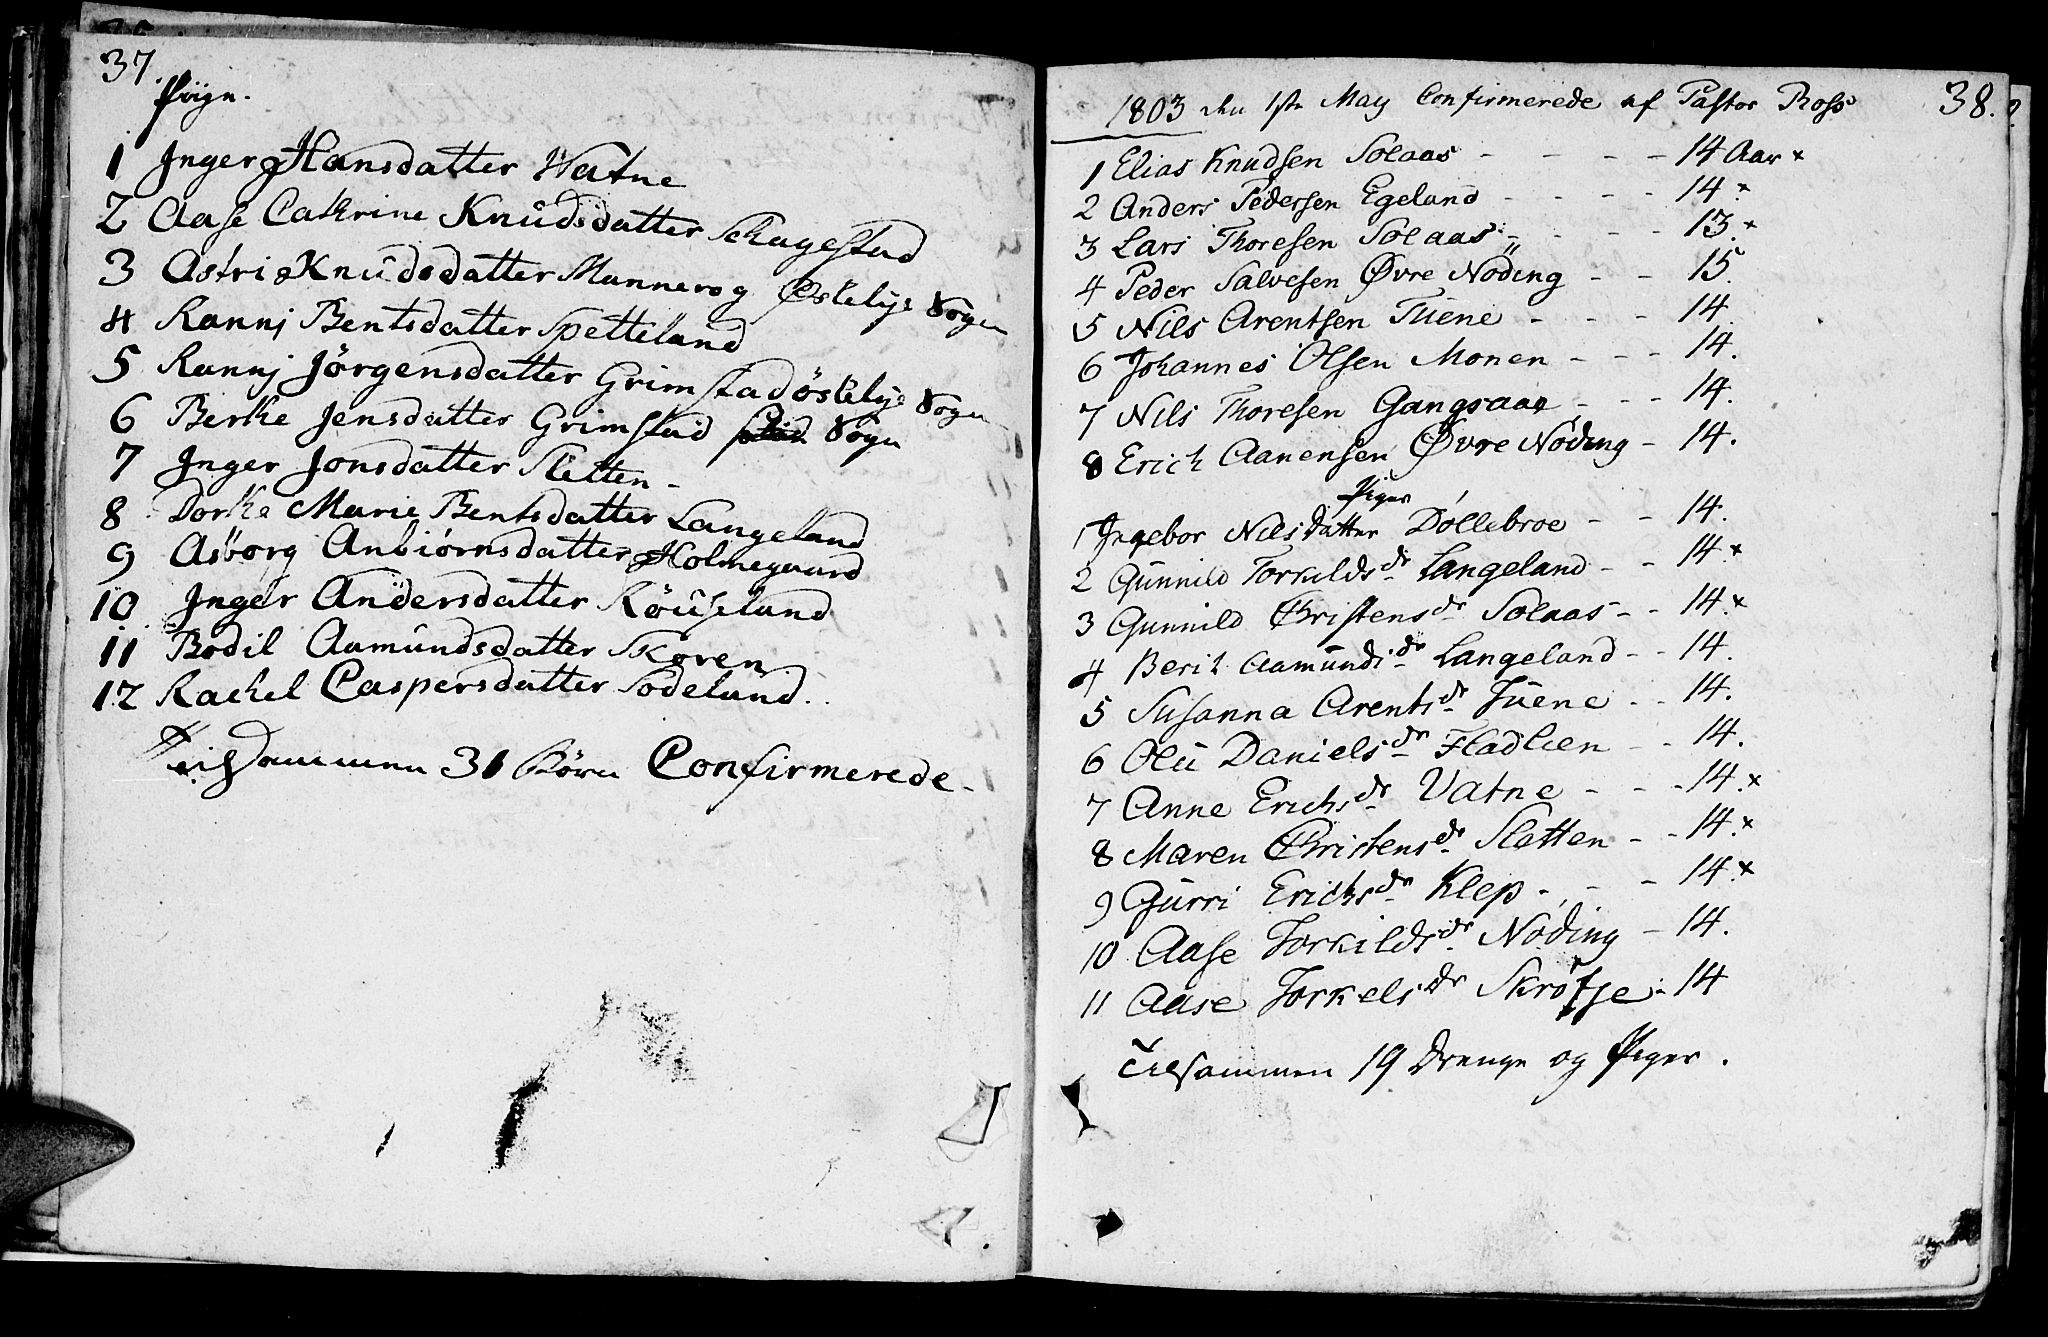 37
Piger.
1 Inger Hansdatter Watne
2 Aase Cathrine Knudsdatter Schagestad
3 Astri Knudsdatter Mannerog Østelye Sogn
4 Rannj Bentsdatter Spetteland
5 Rannj Jörgensdatter Grimstad östelye Sogn
6 Berthe Jensdatter Grimstad Sogn
7 Inger Jonsdatter Sletten
8 Dorthe Marie Bentsdatter Langeland
9 Asborg Anbiörnsdatter Holmegaard
10 Inger Andersdatter Röiseland
11 Bodil Aamundsdatter Skoren
12 Rachel Caspersdatter Sodeland.
Tilsammen 31 Börn Confirmerede
38.
1803 den 1ste May Confirmerede af Pastor Ross
1 Elias Knudsen Solaas - - - - 14 Aar x
2 Anders Pedersen Egeland - - - - 14 x
3 Lars Thoresen Solaas - - - 13 x
4 Peder Salvesen Øvre Nöding - - 15.
5 Nils Arentsen Tuene - - - 14
6 Johannes Olsen Monen - - - 14.
7 Nils Thoresen Gangsaae - - - 14.
8 Erich Aanensen Øvre Nöding - 14.
Piger
1 Ingebor Nilsdatter Döllebroe - - 14.
2 Gunnild Torkildsdr Langeland - - 14 x
3 Gunnild Christensdr Solaas - - 14 x
4 Berit Aamundsdr Langeland - - 14.
5 Susanna Arentsdr Tuene - - 14.
6 Olu Danielsdr Fladlien - - 14.
7 Anne Erichsdr Vatne - - - 14. x
8 Maren Christensdr Sletten - - 14. x
9 Gurri Erichsdr Klep - - - 14. x
10 Aase Torkildsdr Nöding - 14.
11 Aase Torkelsdr Skröfje - 14
Tilsammen 19 Drenge og Piger.